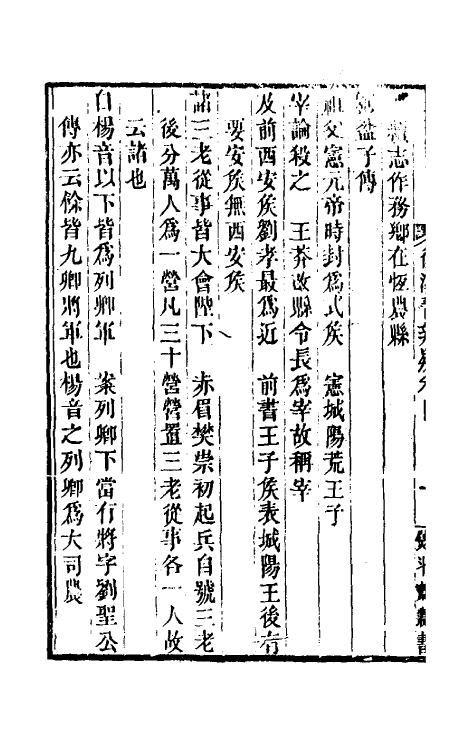 續志作務鄉在恆農縣
盆子傳
祖父憲元帝時封為式矦　憲城陽荒王子
宰論殺之　王莽改縣令長為宰故稱宰
及前西安矦劉孝最為近　前書王子矦表城陽王後有
要安矦無西安矦
諸三老從事皆大會陛下　赤眉樊崇初起兵自號三老
後分萬人為一營凡三十營營置三老從事各一人故
云諸也
自楊音以下皆為列卿軍　案列卿下當有將字劉聖公
傳亦云餘皆九卿將軍也楊音之列卿為大司農